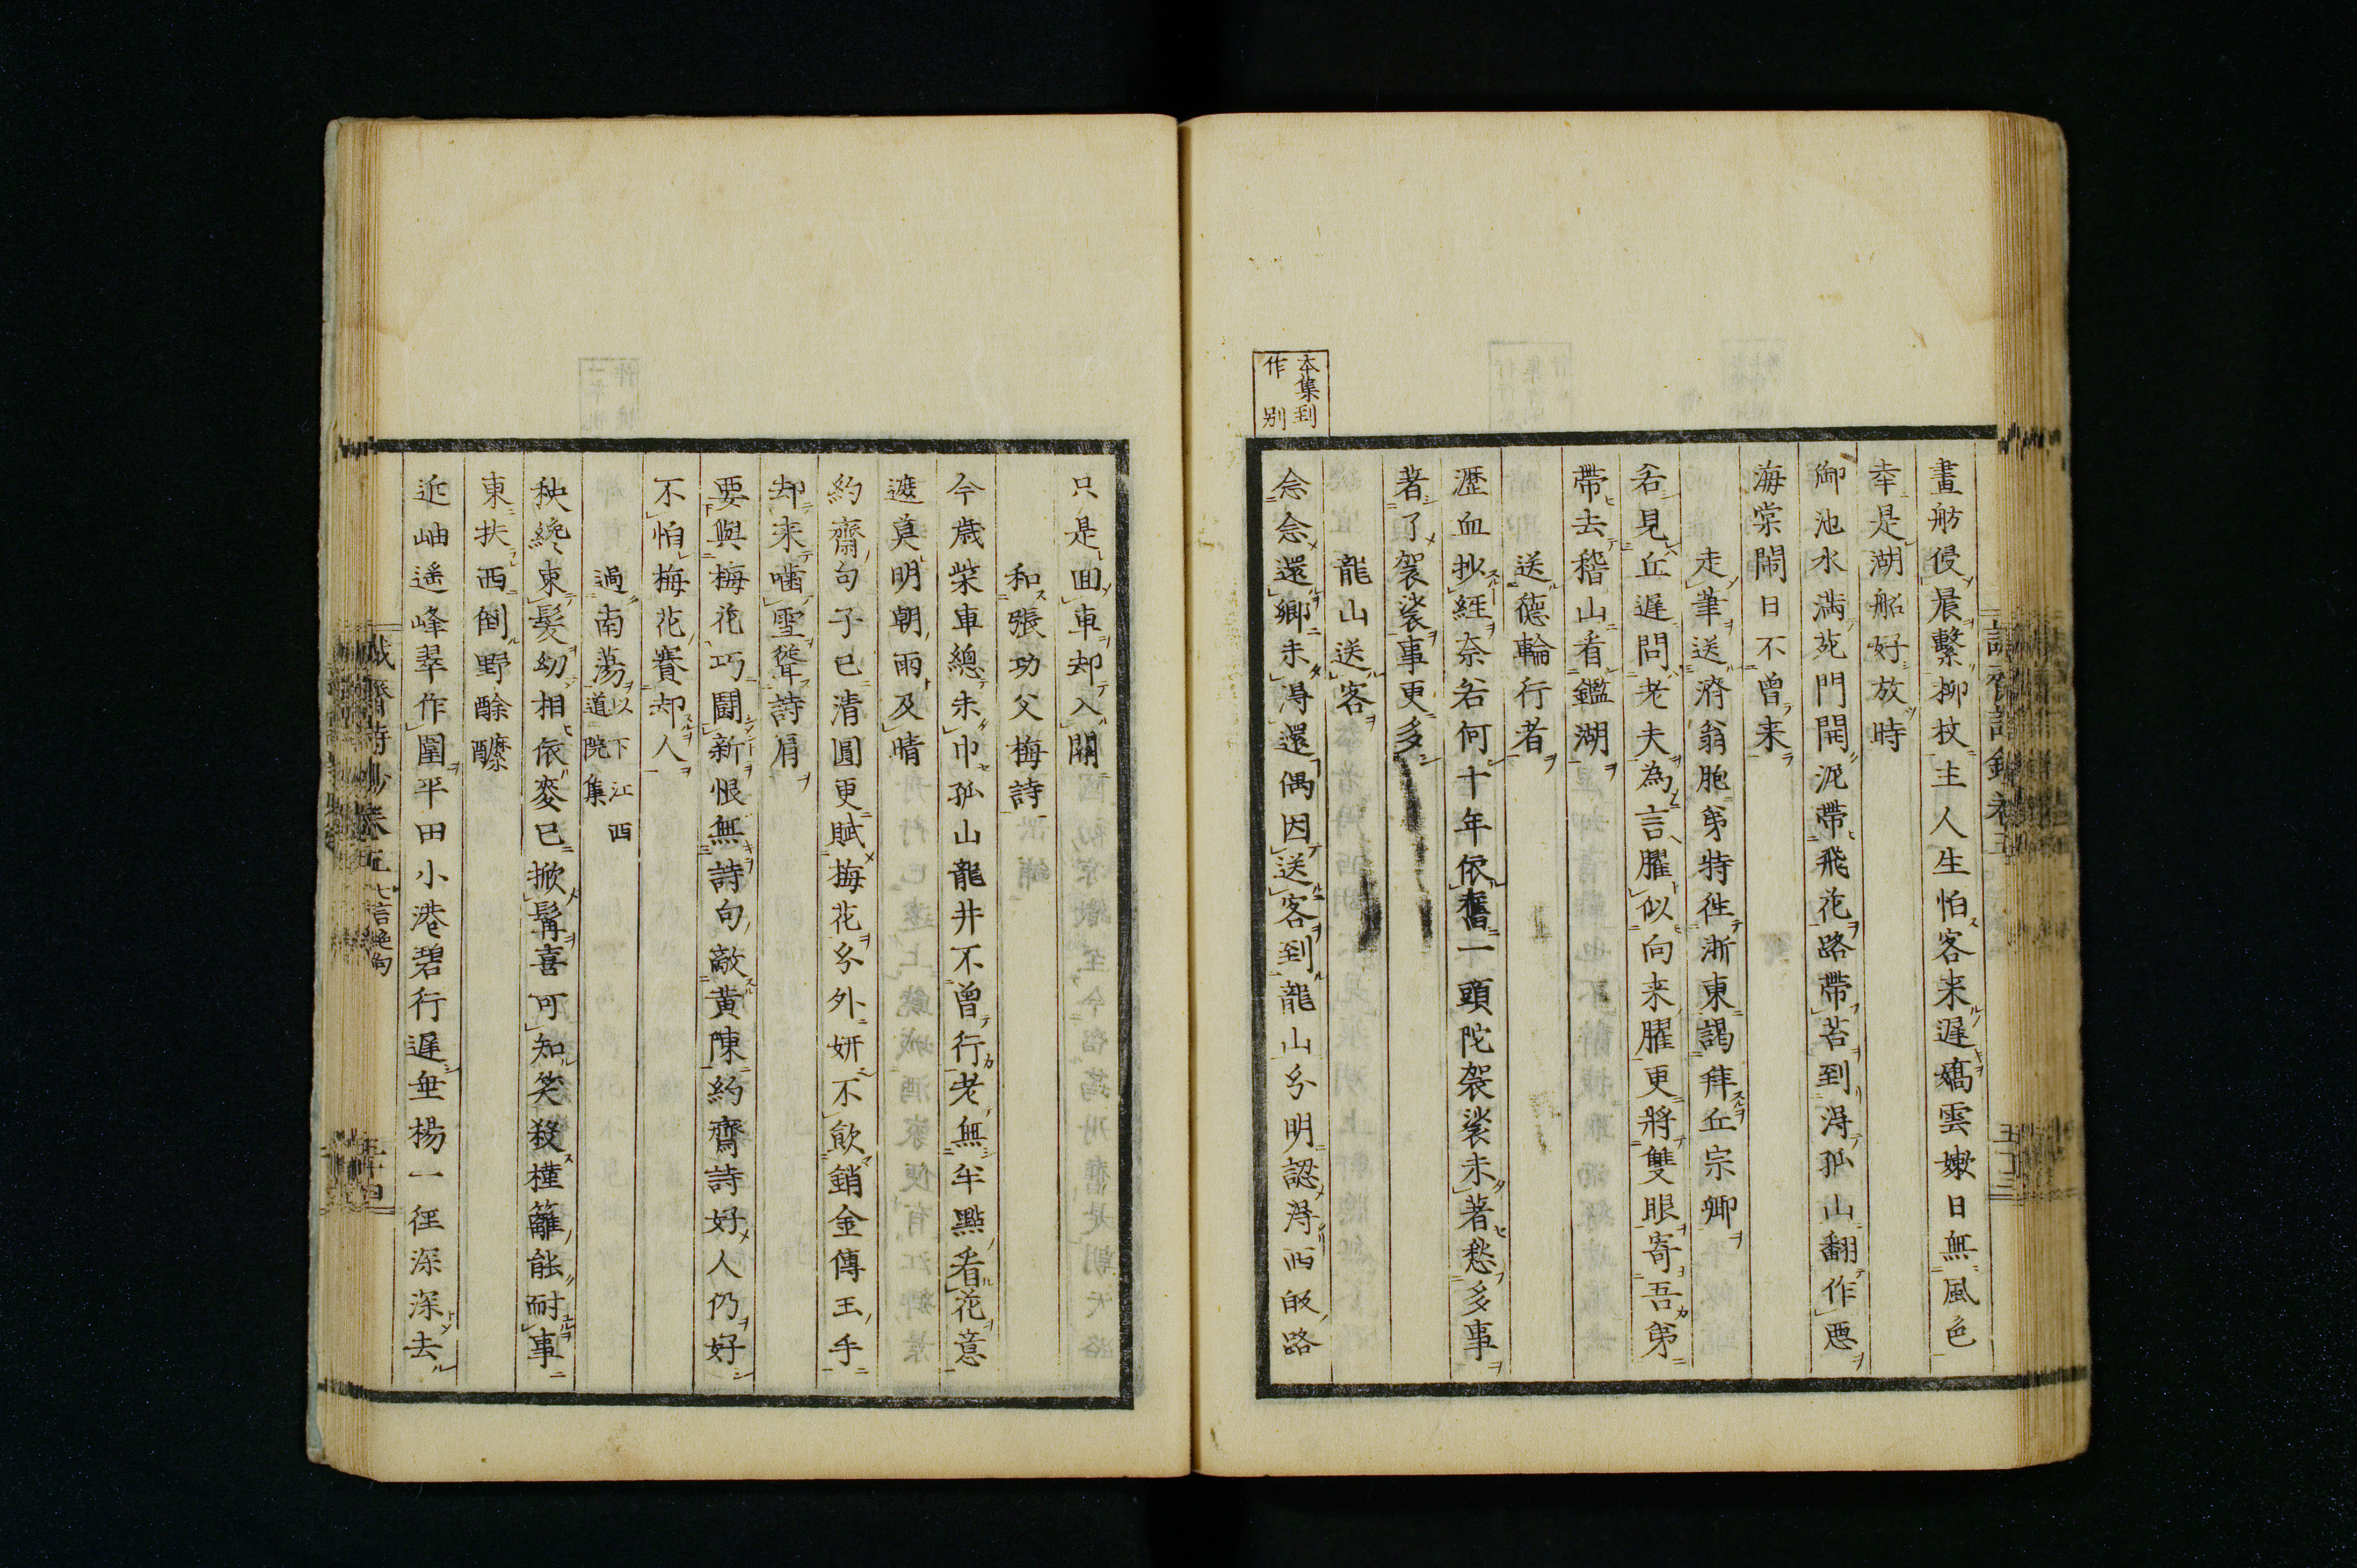 畫舫侵晨繫柳枝主人生怕客来遅嬌雲嫩日無風色
幸是湖船好放時
御池水滿苑門開泥帶飛花路帶苔到得孤山翻作惡
海棠閙日不曾来
走筆送濟翁胞弟特徃浙東謁拜丘宗卿
若見丘遅問老夫為言臞似向来臞更將雙眼寄吾弟
帶去稽山看鑑湖
送德輪行者
瀝血抄經奈若何十年依舊一頭陀袈裟未著愁多事
著了袈裟事更多
龍山送客
本集到
作別
念念還鄉未得還偶因送客到龍山分明認得西皈路
只是回車却入關
和張功父梅詩
今歳柴車總未巾孤山龍井不曾行老無半點看花意
遮莫明朝雨及晴
約齋句子已清圓更賦梅花分外妍不飲銷金傳玉手
却来嚙雪聳詩肩
要與梅花巧鬪新恨無詩句敵黄陳約齋詩好人仍好
不怕梅花賽却人
過南蕩以下江西道院集
秧纔束髮幼相依麥已掀髯喜可知笑殺槿籬能耐事
東扶西倒野酴醿
近岫遥峰翠作圍平田小港碧行遅垂楊一徑深深去
誠齋詩鈔卷五七言絶句 五十四